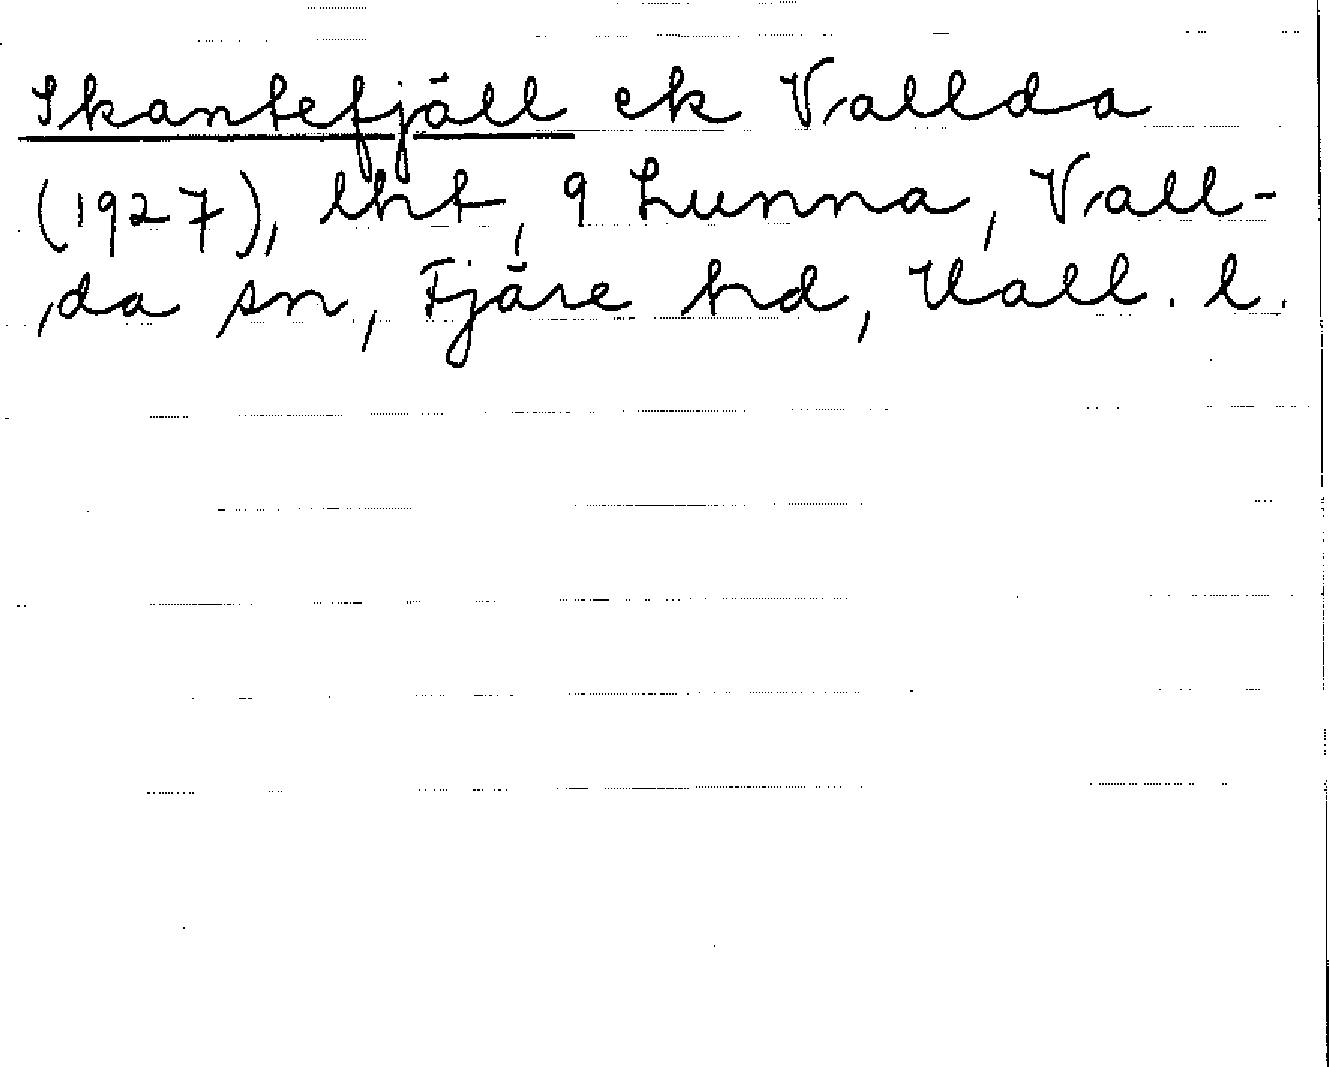 Skantefjäll ek Vallda
(1927), lht, 9 Lunna, Vall-
da sn, Fjäre hd, Hall. l.